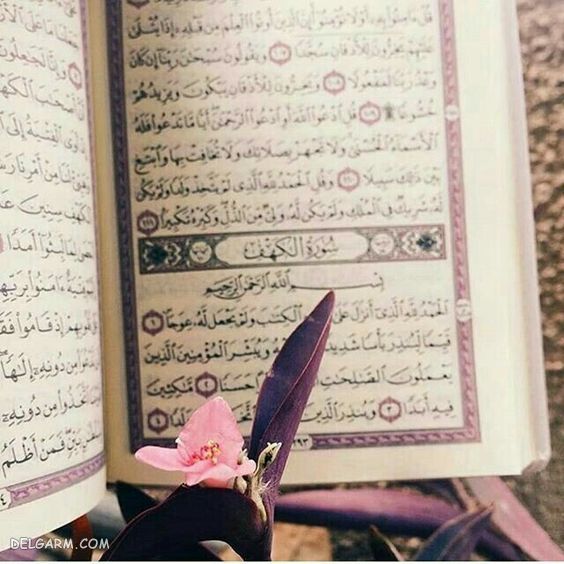 قُلْ ءَامِنُوا۟ بِهِۦٓ أَوْ لَا تُؤْمِنُوٓا۟ إِنَّ ٱلَّذِينَ أُوتُوا۟ ٱلْعِلْمَ مِن قَبْلِهِۦٓ إِذَا يُتْلَىٰ
عَلَيْهِمْ يَخِرُّونَ لِلْأَذْقَانِ سُجَّدًا ١٠٧ وَيَقُولُونَ سُبْحَٰنَ رَبِّنَآ إِن كَانَ
وَعْدُ رَبِّنَا لَمَفْعُولًا ١٠٨ وَيَخِرُّونَ لِلْأَذْقَانِ يَبْكُونَ وَيَزِيدُهُمْ
خُشُوعًا ۩ ١٠٩ قُلِ ٱدْعُوا۟ ٱللَّهَ أَوِ ٱدْعُوا۟ ٱلرَّحْمَٰنَ أَيًّا مَّا تَدْعُوا۟ فَلَهُ
ٱلْأَسْمَآءُ ٱلْحُسْنَىٰ وَلَا تَجْهَرْ بِصَلَاتِكَ وَلَا تُخَافِتْ بِهَا وَٱبْتَغِ
بَيْنَ ذَٰلِكَ سَبِيلًا ١١٠ وَقُلِ ٱلْحَمْدُ لِلَّهِ ٱلَّذِى لَمْ يَتَّخِذْ وَلَدًا وَلَمْ يَكُن
لَّهُۥ شَرِيكٌ فِى ٱلْمُلْكِ وَلَمْ يَكُن لَّهُۥ وَلِىٌّ مِّنَ ٱلذُّلِّ وَكَبِّرْهُ تَكْبِيرًۢا ١١١
سُورَةُ الكَهْفِ
بِسْمِ ٱللَّهِ ٱلرَّحْمَٰنِ ٱلرَّحِيمِ
ٱلْحَمْدُ لِلَّهِ ٱلَّذِىٓ أَنزَلَ عَلَىٰ ٱلْكِتَٰبَ وَلَمْ يَجْعَل لَّهُۥ عِوَجَا ١
قَيِّمًا لِّيُنذِرَ بَأْسًا شَدِيدًا وَيُبَشِّرَ ٱلْمُؤْمِنِينَ ٱلَّذِينَ
يَعْمَلُونَ ٱلصَّٰلِحَٰتِ حَسَنًا ٢ مَّٰكِثِينَ
فِيهِ أَبَدًا ٣ وَيُنذِرَ ٱلَّذِينَ وَلَدًا ٤
٢٩٣
جَعَلْنَا مَا عَلَى
وَإِنَّا لَجَٰعِلُونَ
أَنَّ أَصْحَٰبَ ٱلْكَهْفِ
أَوَى ٱلْفِتْيَةُ إِلَى
لَنَا مِنْ أَمْرِنَا رَشَدًا
ٱلْكَهْفِ سِنِينَ
لِمَا لَبِثُوٓا۟ أَمَدًا
ءَامَنُوا۟ بِرَبِّهِمْ
إِذْ قَامُوا۟ فَقَالُوا۟
مِن دُونِهِۦٓ إِلَٰهًا
ٱتَّخَذُوا۟ مِن دُونِهِۦٓ
بَيِّنٍ فَمَنْ أَظْلَمُ
DELGARM.COM